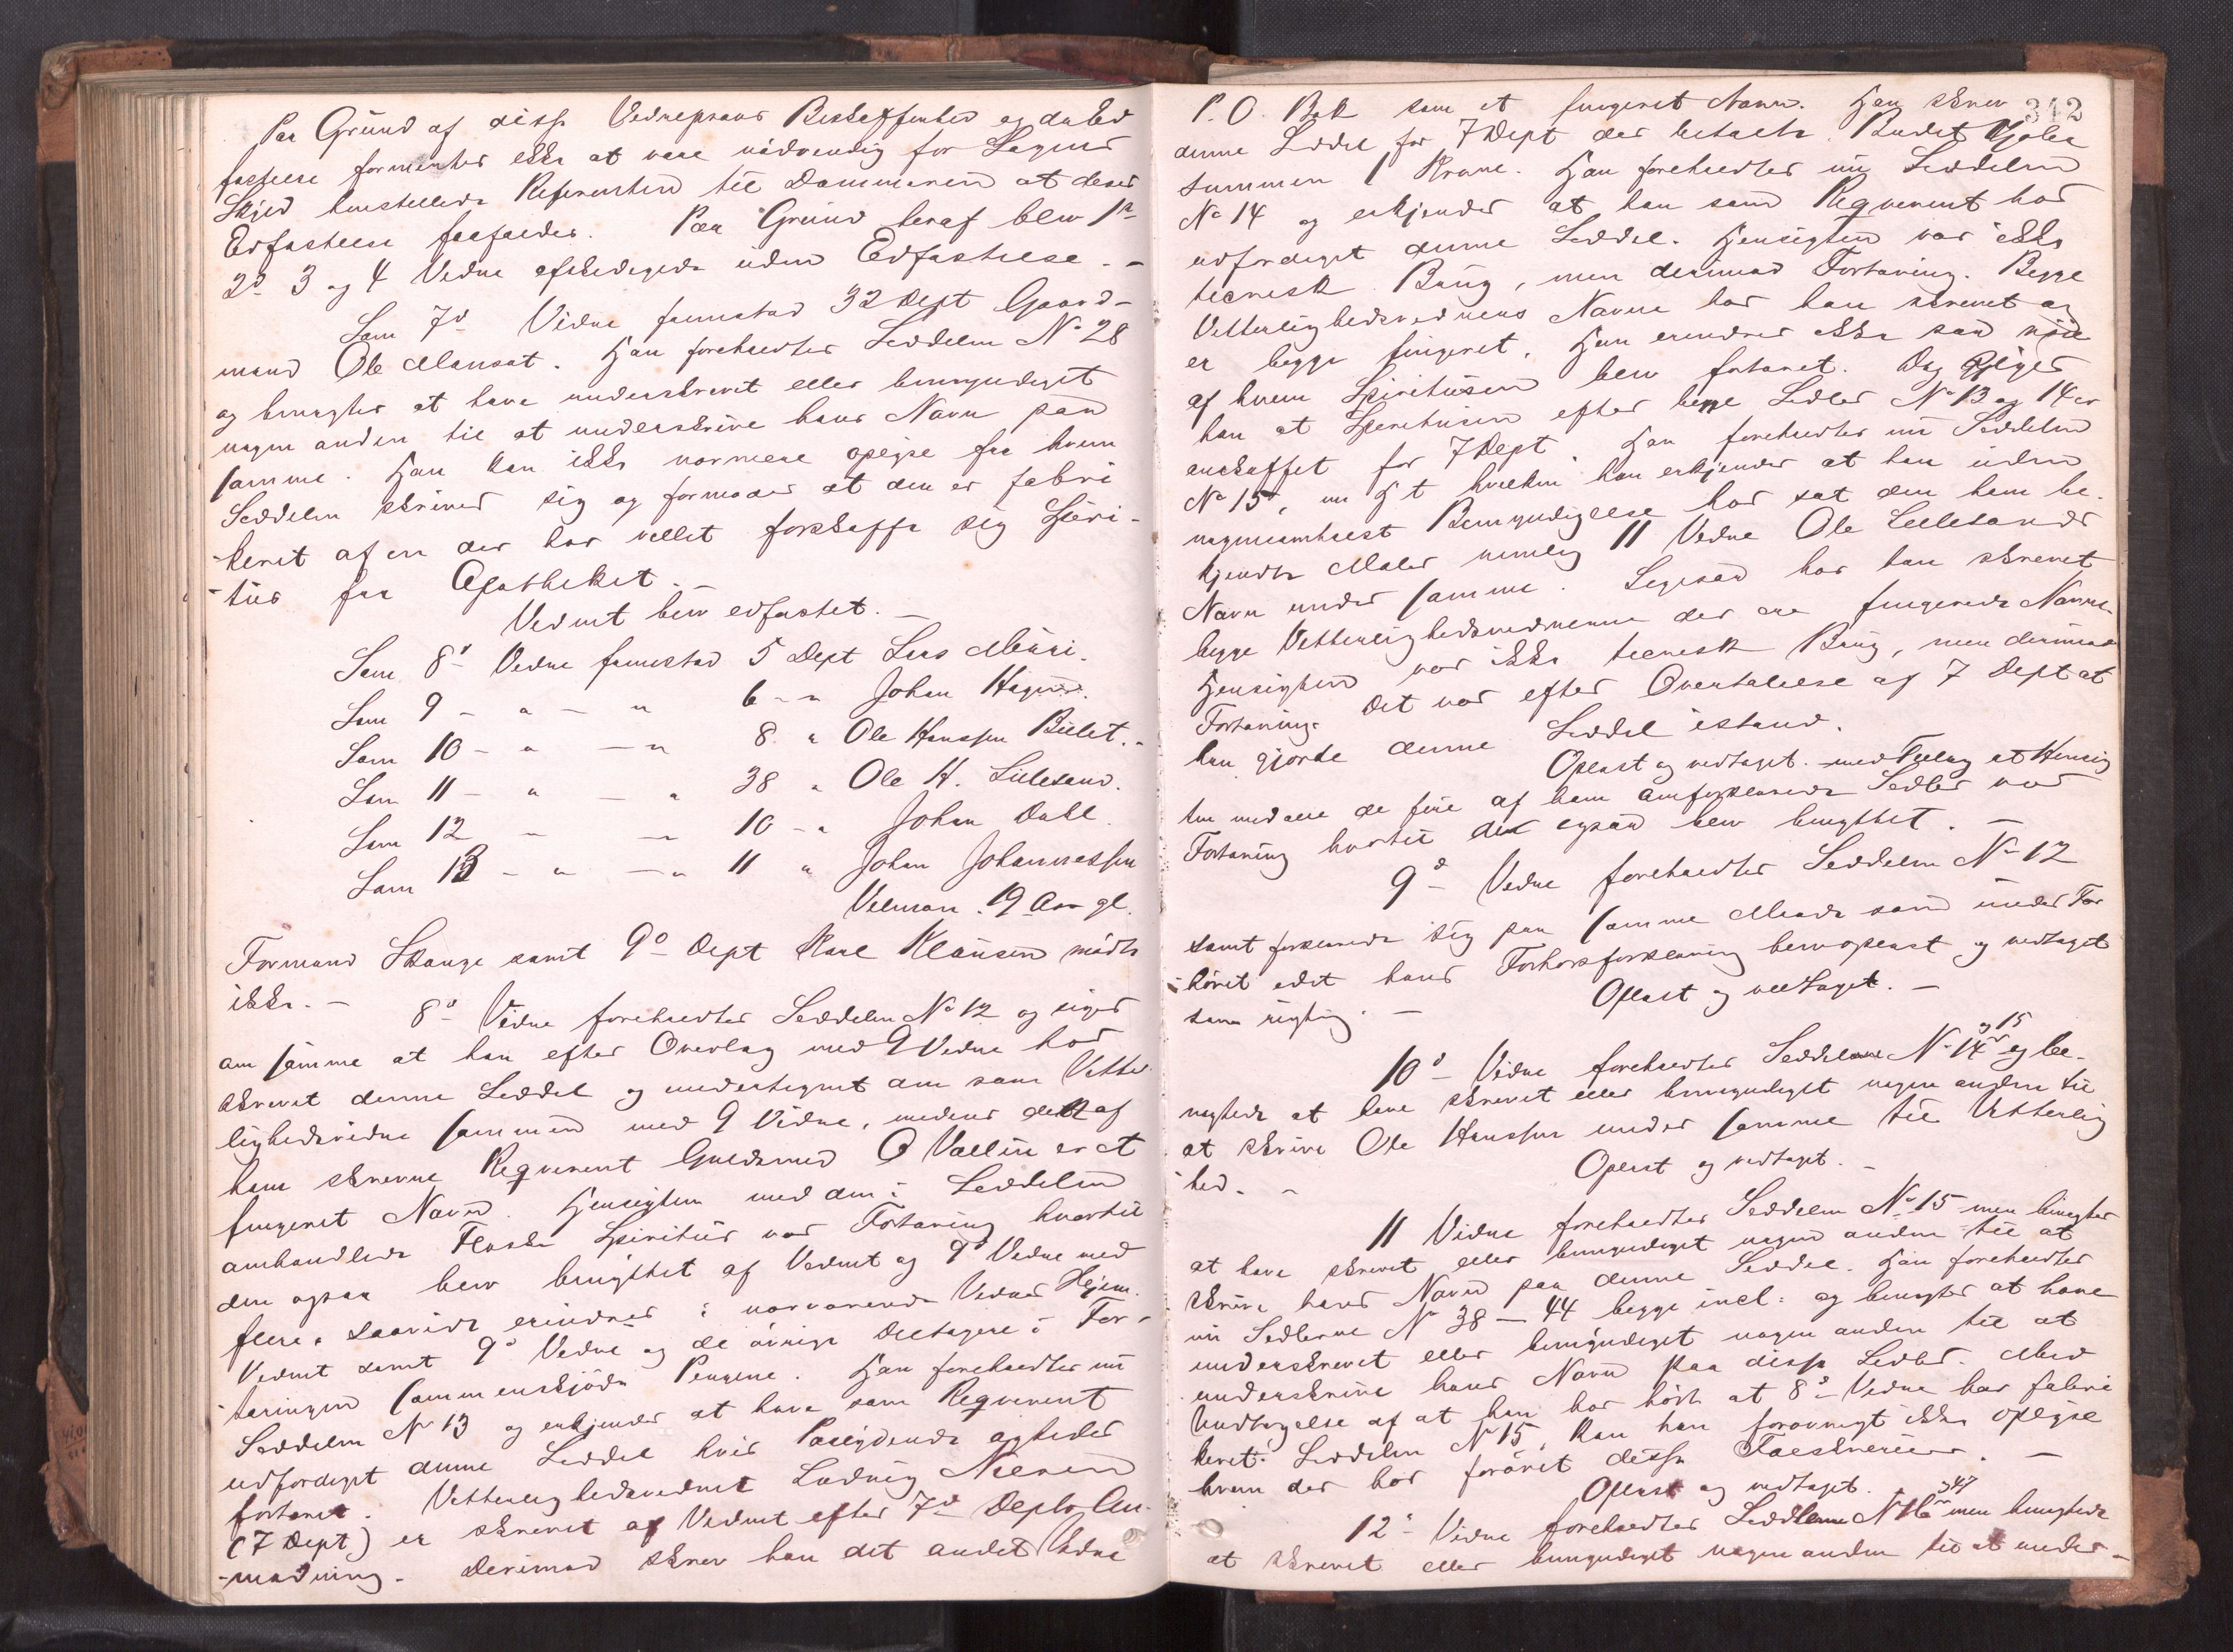 Paa Grund af disse Vidneprovs Beskaffenhed og da Ed
fæstelse formentes ikke at være nødvendig for Sagens
Skjød henstillede Referenten til Dommeren at deres
Edfæstelse frafaldes. Paa Grund heraf blev 1ste
2d 3 og 4 Vidne afskedigede uden Edfæstelse. -
Som 7d Vidne fremstod 32 Dept Gaard-
mand Ole Mansat. Han foreholdtes Seddelen No 28
og benægter at have underskrevet eller bemyndiget
nogen anden til at underskrive hans Navn paa
samme. Han kan ikke nærmere oplyse fra hvem
Seddelen skriver sig og formoder at den er fabri
-keret af en der har villet forskaffe sig Spiri-
-tus fra Apotheket. -
Vidnet blev edfæstet. -
Som 8d Vidne fremstod 5 Dept Lars
Som 9 - " - " 6 - " Johan
Som 10 - " - " 8 " Ole Hanssen
Som 11 - " - " 38 " Ole H. Lillesand.
Som 12 - - " 10 - " Johan Dahl
Som 13 - " - " 11 " Johan Johannessen
19 Aar gl.
Formand Skauge samt 9d Dept Karl Klausen mødte
ikke. -
8d Vidne foreholdtes Seddelen No 12 og siger
om samme at han efter Overlæg med 9 Vidne har
skrevet denne Seddel og undertegnet den som Vitter
lighedsvidne sammen med 9 Vidne, medens det af
ham skrevne Reqvirent Guldsmed O Vallin er et
fingeret Navn. Hensigten med den i Seddelen
omhandlede Flaske Spiritus var Fortæring hvortil
den ogsaa blev benyttet af Vidnet og 9d Vidne med
flere, saavidt erindres i nærværende Vidnes Hjem.
Vidnet samt 9d Vidne og de øvrige Deltagere i For-
-tæringen sammenskjød Pengene. Han foreholdtes nu
Seddelen No 13 og erkjender at have som Reqvirent
udfærdiget denne Seddel hvis Paalydende ogledes
fortæret. Vitterlighedsvidnet Ludvig Nilsen
(7 Dept) er skrevet af Vidnet efter 7d Depts An-
-modning. Derimod skrev han det andet Vidne
342
P. O. Bak som et fingeret Navn. Han skrev
denne Seddel for 7 Dept der betalte Budet Kjøbe
summen 1 Krone. Han foreholdtes nu Seddelen
No 14 og erkjender at han som Reqvirent har
udfærdiget denne Seddel. Hensigten var ikke
teknisk Brug, men derimod Fortæring. Begge
Vitterlighedsvidnens Navne har han skrevet og
er begge fingeret. Han erindrer ikke saa nøie
af hvem Spiritusen blev fortæret. Dog siger
han at Spiritusen efter begge Sedler No 13 og 14 er
anskaffet for 7 Dept. Han foreholdtes nu Seddelen
No 15, m H t hvilken han erkjender at han uden
nogensomhelst Bemyndigelse har sat den ham be-
kjendte Maler nemlig 11 Vidne Ole Lillesands
Navn under samme. Ligesaa har han skrevet
begge Vitterlighedsvidnerne der ere fingerede Navne.
Hensigten var ikke teknisk Brug, men derimod
Fortæring. Det var efter Overtalelse af 7 Dept at
han gjorde denne Seddel istand.
Oplæst og vedtaget. med Tillæg at Hensig
ten med alle de fire af ham omforklarede Sedler var
Fortæring hvortil de ogsaa blev benyttet. -
9d Vidne foreholdtes Seddelen No 12
samt forklarede sig paa samme Maade som under For
-høret idet hans Forhørsforklaring blev oplæst og vedtaget
som rigtig. -
Oplæst og vedtaget. -
10d Vidne foreholdtes Seddelene No 14 og 15 og be-
nægtede at have skrevet eller bemyndiget nogen anden til
at skrive Ole Hanssen under samme til Vitterlig
-hed. -
Oplæst og vedtaget. -
11 Vidne foreholdtes Seddelen No 15 men benægter
at have skrevet eller bemyndiget nogen anden til at
skrive hans Navn paa denne Seddel. Han foreholdtes
nu Sedlerne No 38 - 44 begge incl: og benægter at have
underskrevet eller bemyndiget nogen anden til at
underskrive hans Navn paa disse Sedler. Med
Undtagelse af at han har hørt at 8d Vidne har fabri
keret Seddelen No 15, kan han forøvrigt ikke oplyse
hvem der har forøvet disse Falsknerier. -
Oplæst og vedtaget.
12d Vidne foreholdtes Seddlerne No 16 men benægtede
at skrevet eller bemyndiget nogen anden til at under-